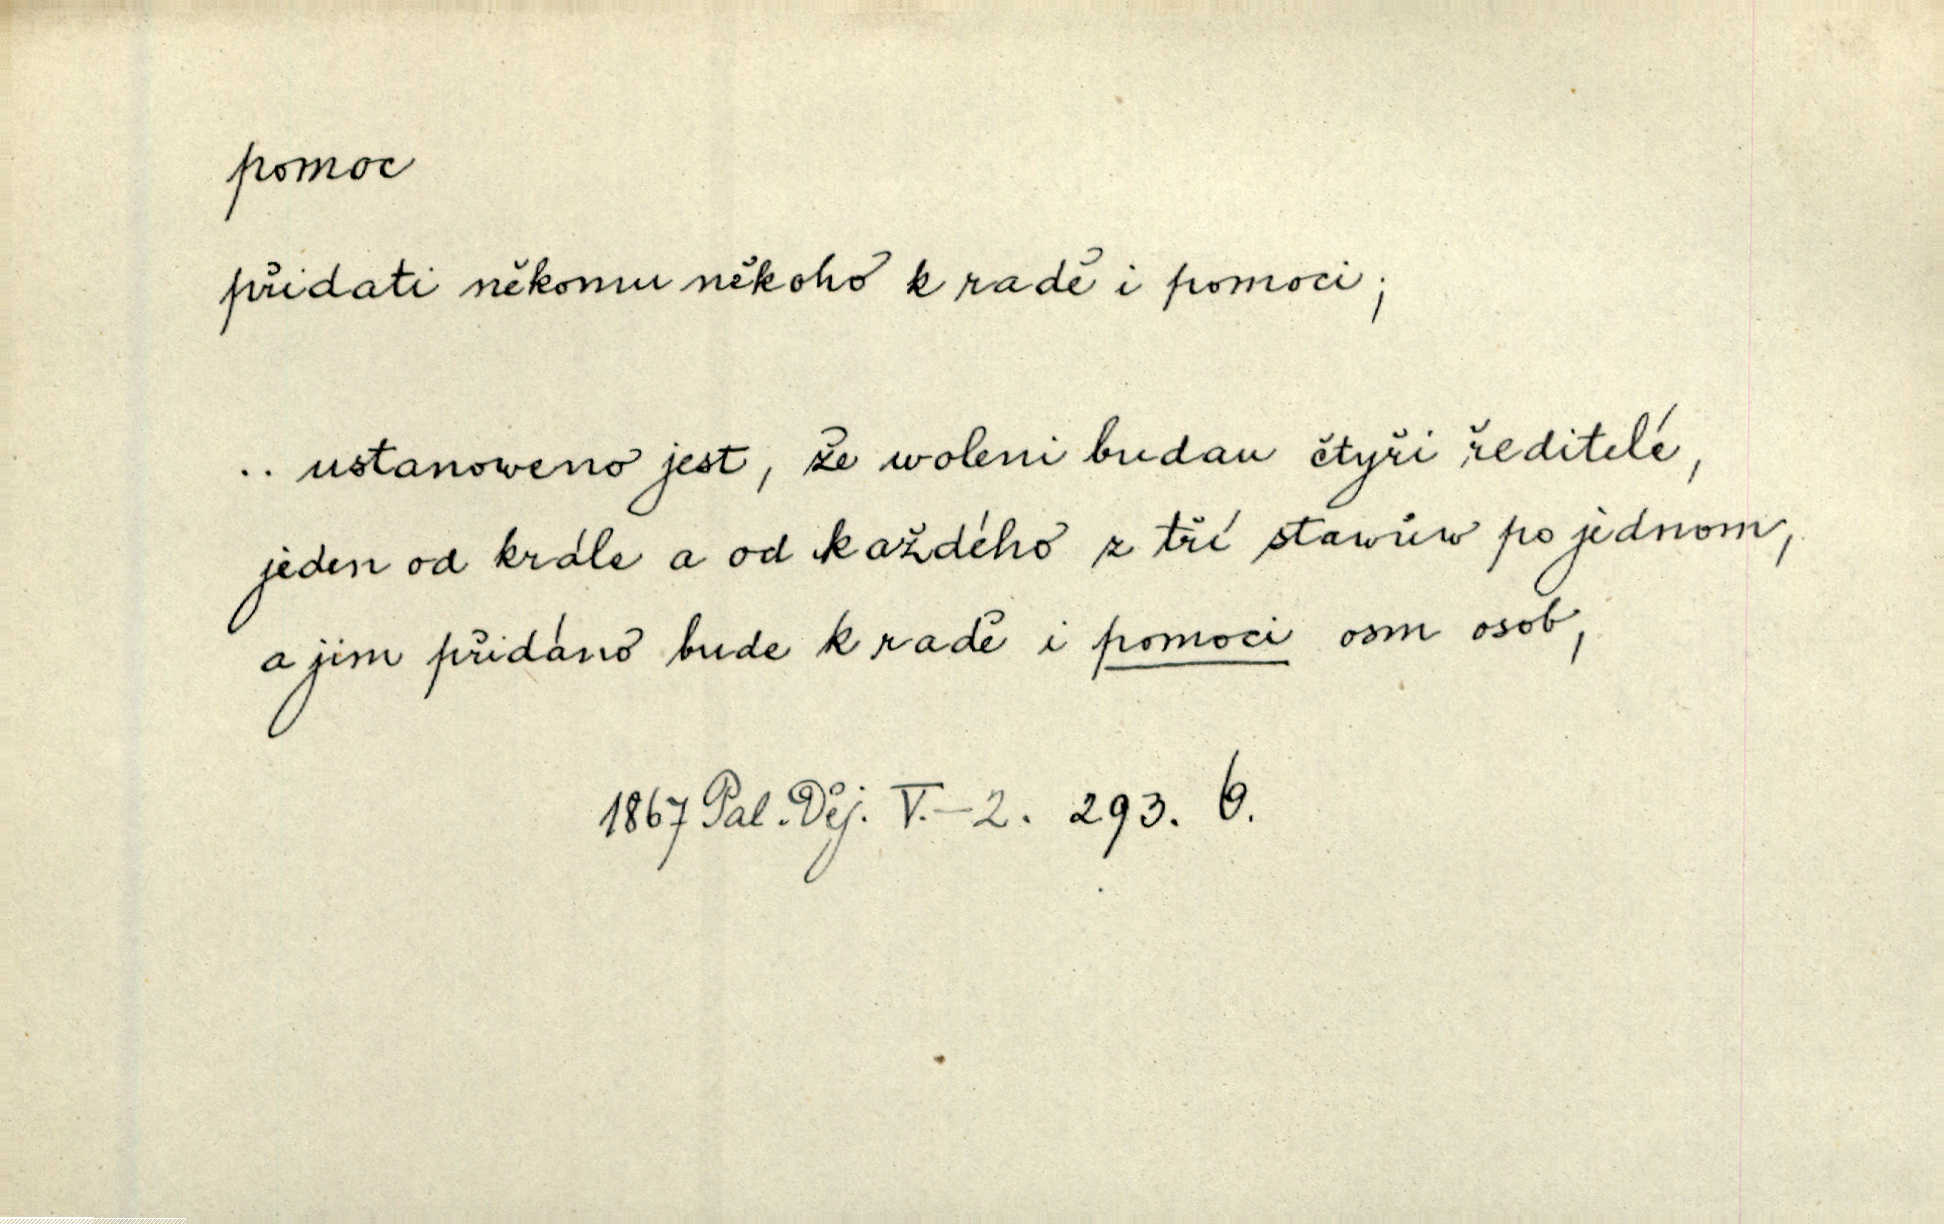 pomoc
přidati někomu někoho k radě i pomoci;
.. ustanoweno jest, že woleni budau čtyři ředitelé,
jeden od krále a od každého z tří stawůw po jednom,
a jim přidáno bude k radě i pomoci osm osob,
1867 Pal. Děj. V.-2. 293. b.